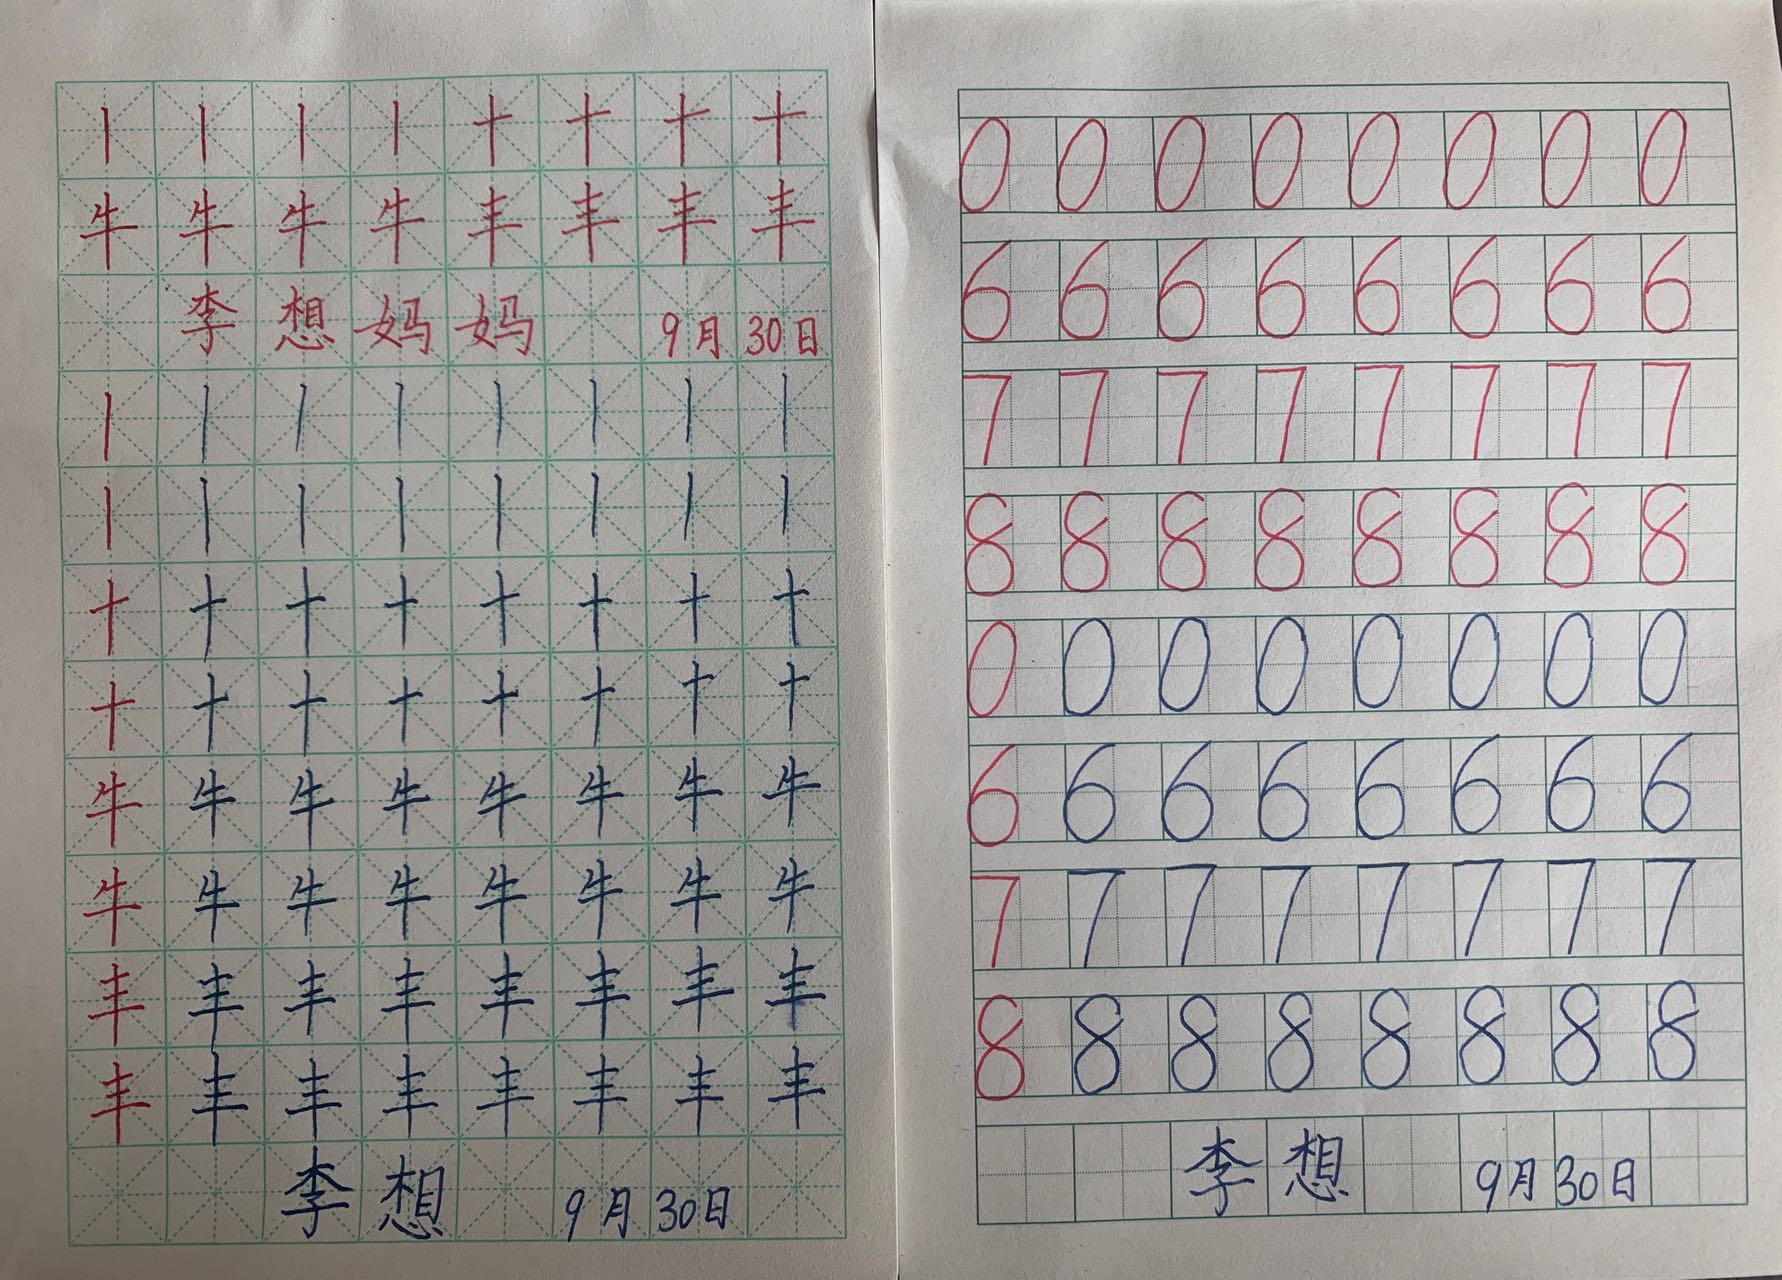 丨 丨 丨 丨 十 十 十 十
牛 牛 牛 牛 丰 丰 丰 丰
李 想 妈 妈 9月 30日
丨 丨 丨 丨 丨 丨 丨 丨
丨 丨 丨 丨 丨 丨 丨 丨
十 十 十 十 十 十 十 十
十 十 十 十 十 十 十 十
牛 牛 牛 牛 牛 牛 牛 牛
牛 牛 牛 牛 牛 牛 牛 牛
丰 丰 丰 丰 丰 丰 丰 丰
丰 丰 丰 丰 丰 丰 丰 丰
李 想 9月 30日
0 0 0 0 0 0 0 0
6 6 6 6 6 6 6 6
7 7 7 7 7 7 7 7
8 8 8 8 8 8 8 8
0 0 0 0 0 0 0 0
6 6 6 6 6 6 6 6
7 7 7 7 7 7 7 7
8 8 8 8 8 8 8 8
李 想 9月 30日